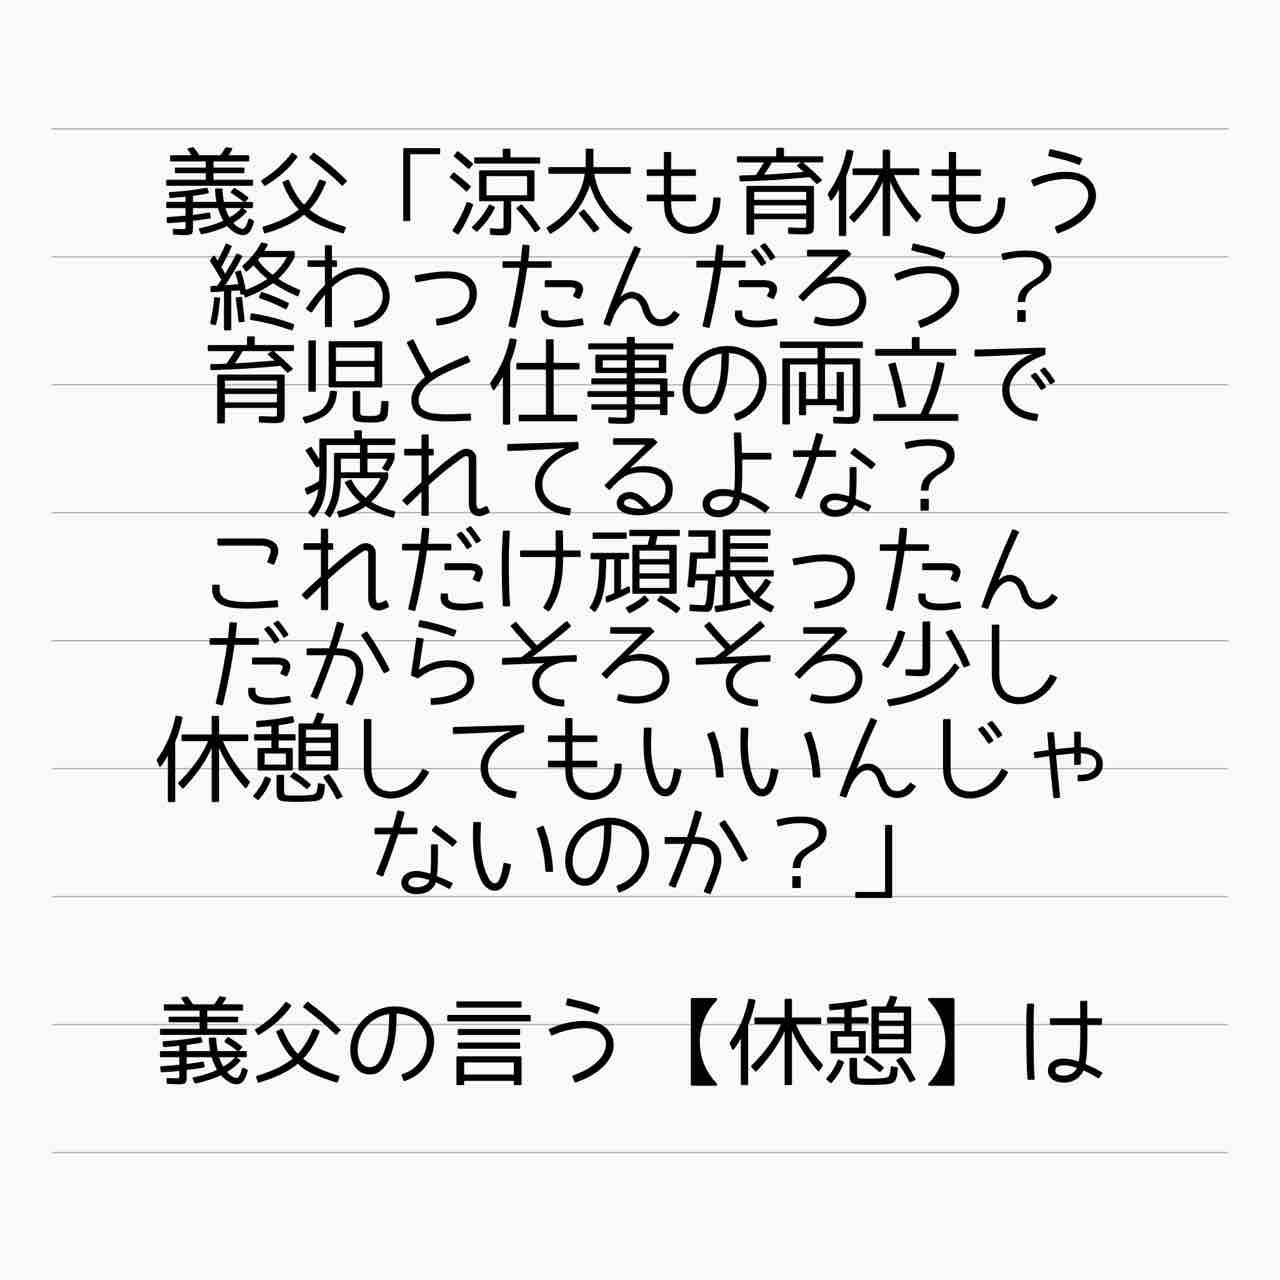 義父「涼太も育休もう
終わったんだろう？
育児と仕事の両立で
疲れてるよな？
これだけ頑張ったん
だからそろそろ少し
休憩してもいいんじゃ
ないのか？」
義父の言う【休憩】は